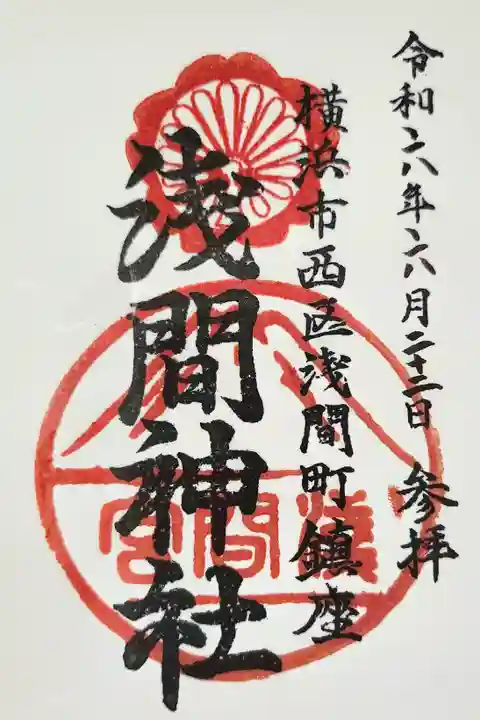 令和六年六月二十二日 参拝
横浜市西区浅間町鎮座
浅間神社
浅間宮